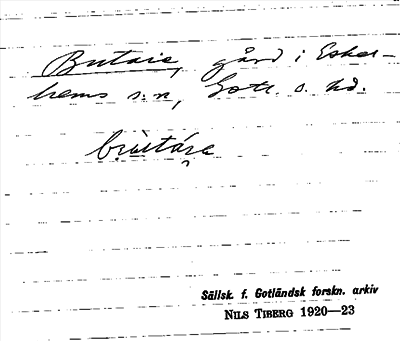 Butaie, gård i Eskel-
hems s:n, Gotl. s. hd.
Sällsk. f. Gotländsk forskn. arkiv
NILS TIBERG 1920—23